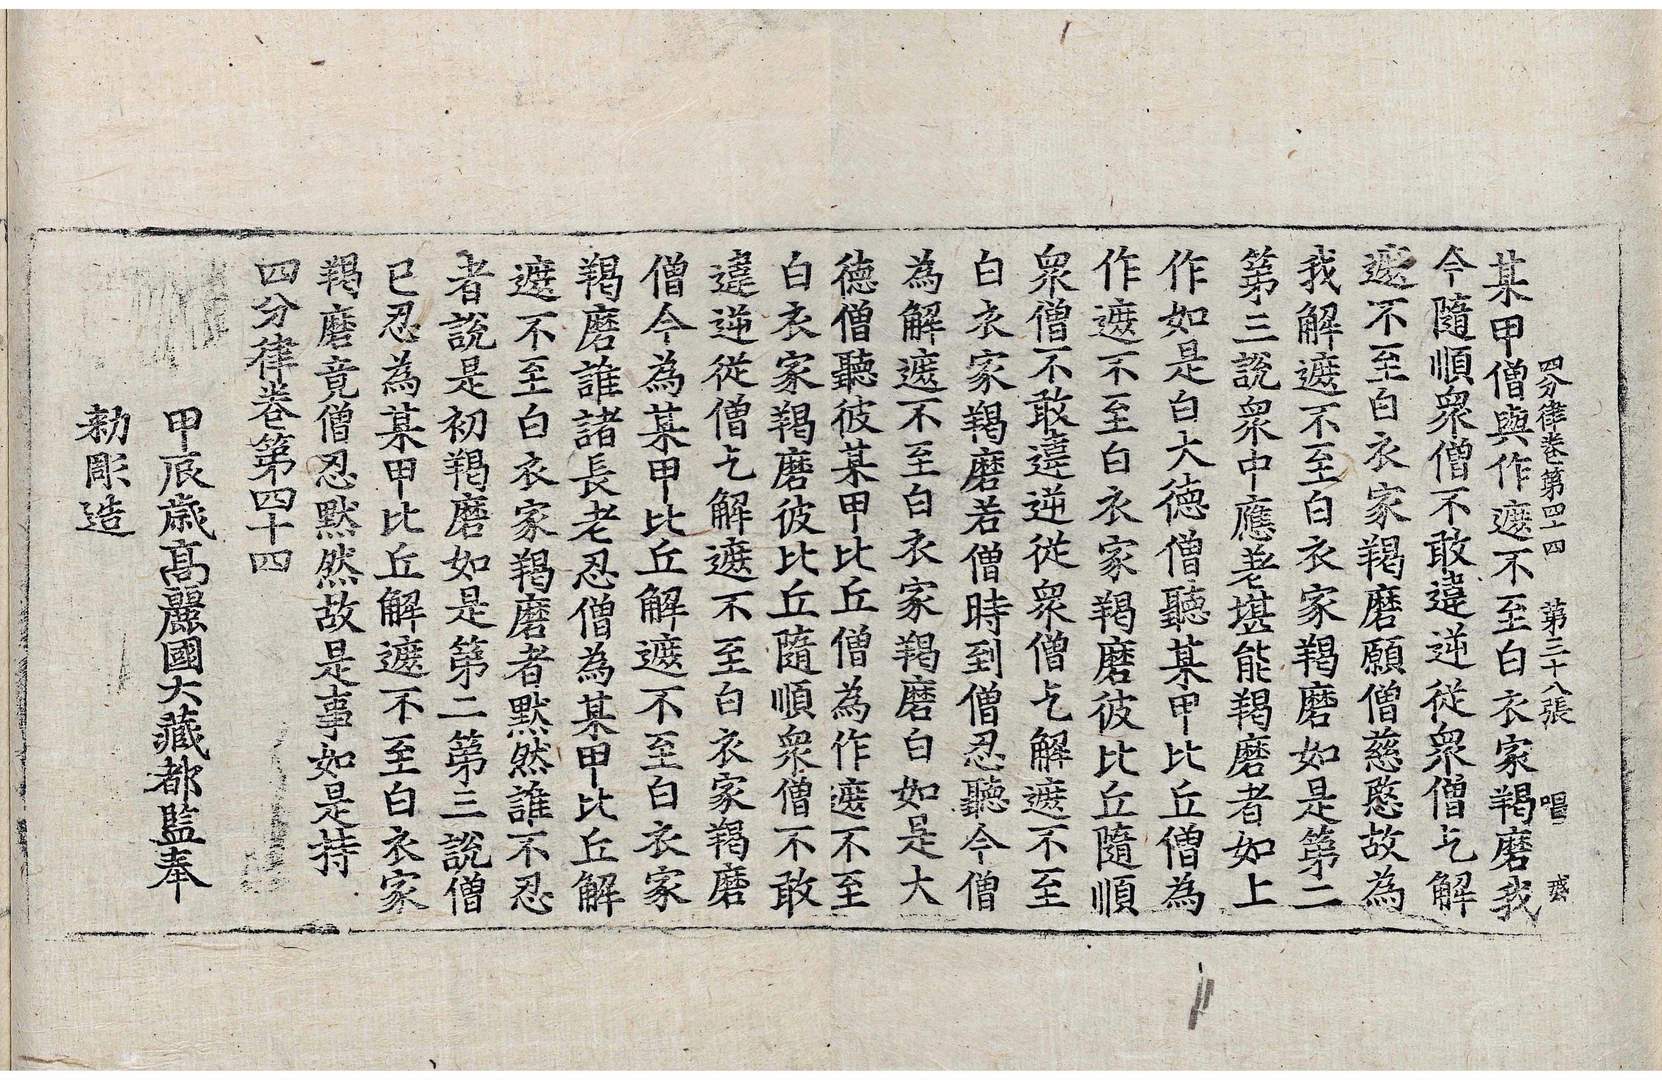 四分律卷第四十四 第三十八張 唱
某甲僧與作遮不至白衣家羯磨我
今隨順衆僧不敢違逆從衆僧乞解
遮不至白衣家羯磨願僧慈愍故為
我解遮不至白衣家羯磨如是第二
第三說衆中應差堪能羯磨者如上
作如是白大德僧聽某甲比丘僧為
作遮不至白衣家羯磨彼比丘隨順
衆僧不敢違逆從衆僧乞解遮不至
白衣家羯磨若僧時到僧忍聽今僧
為解遮不至白衣家羯磨白如是大
德僧聽彼某甲比丘僧為作遮不至
白衣家羯磨彼比丘隨順衆僧不敢
違逆從僧乞解遮不至白衣家羯磨
僧今為某甲比丘解遮不至白衣家
羯磨誰諸長老忍僧為某甲比丘解
遮不至白衣家羯磨者默然誰不忍
者說是初羯磨如是第二第三說僧
已忍為某甲比丘解遮不至白衣家
羯磨竟僧忍默然故是事如是持
四分律卷第四十四
甲辰歲高麗國大藏都監奉
勅彫造